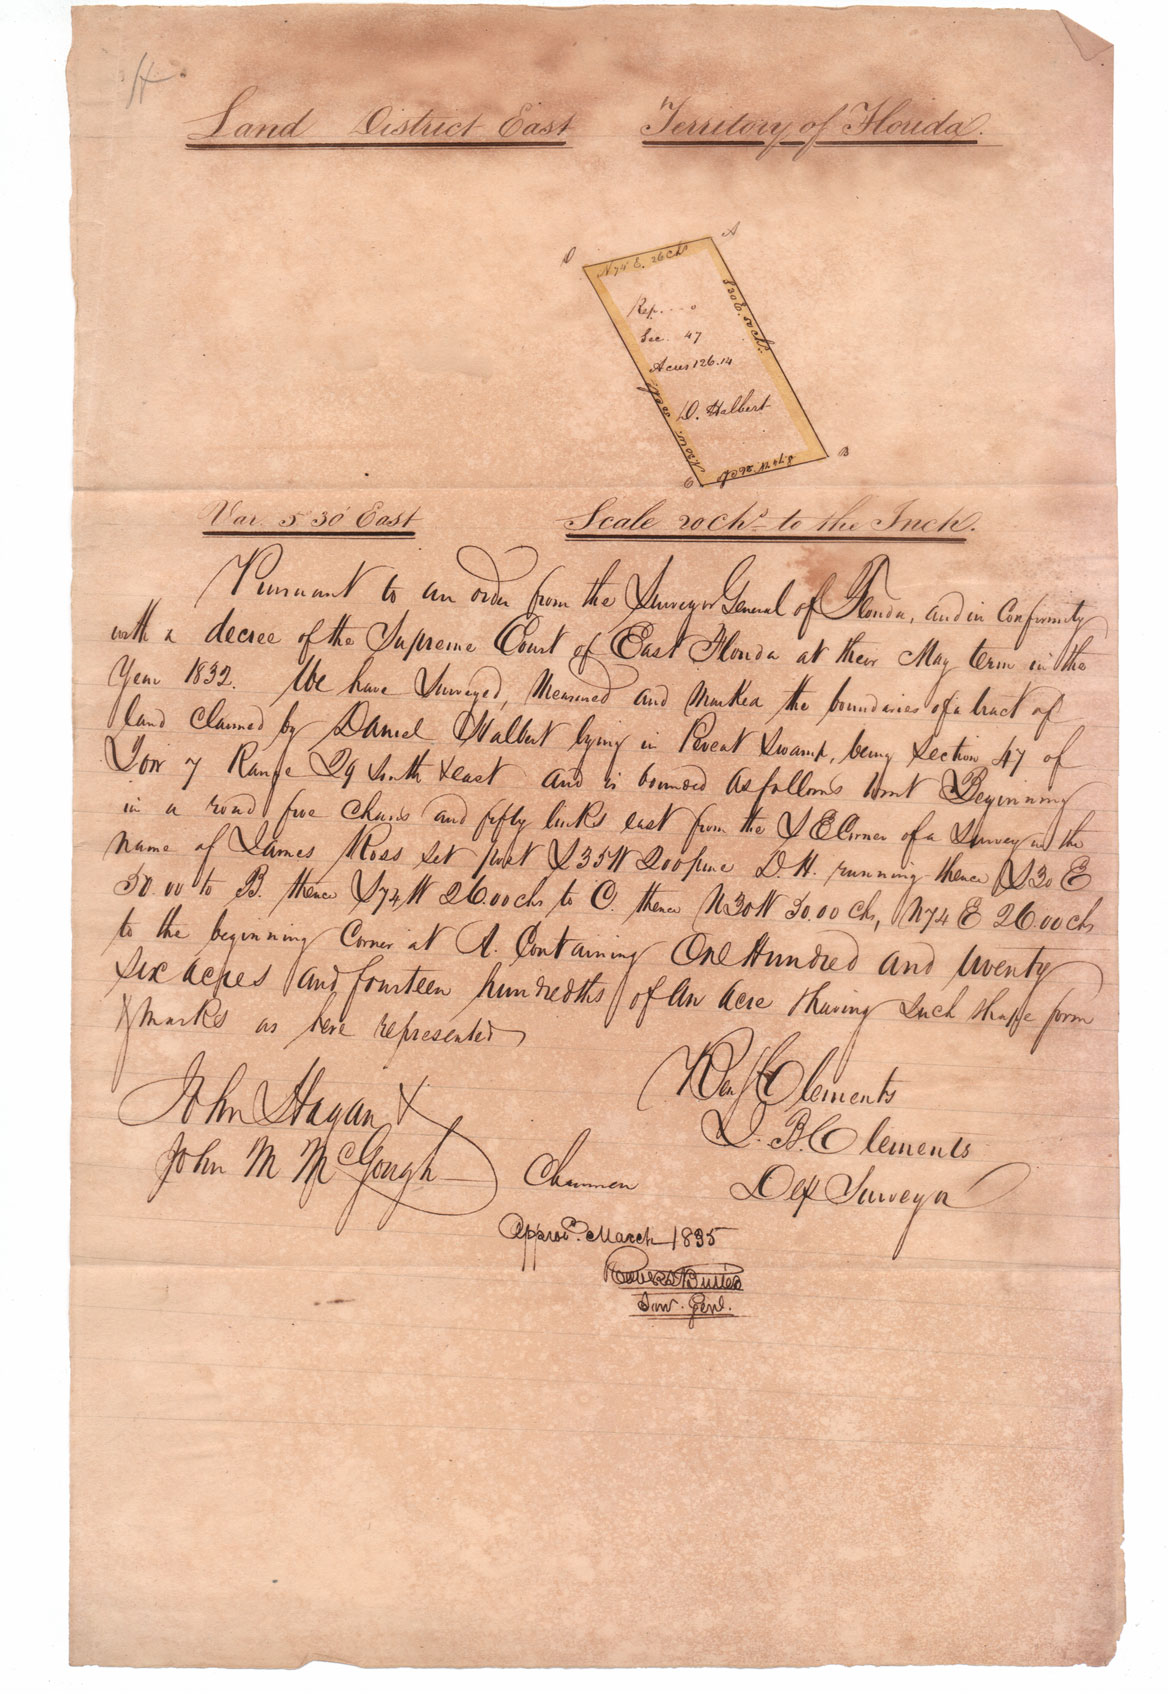 Land District East Territory of Florida.
D A
N 74 E. 26 Chs
S 30 E. 50 Chs.
Sec. 47
Acres 126.14
D. Halbert
N 30 W. 50 Ch
S 74 W. 26 Ch
C B
Var. 5 30' East Scale 20 Chs to the Inch.
Pursuant to an order from the Surveyor General of Florida, and in Confirmity
with a decree of the Supreme Court of East Florida at their May term in the
Year 1832. We have Surveyed, Measured and Marked the boundaries of a tract of
land claimed by Daniel Halbert lying in Swamp, being Section 47 of
Tow 7 Range 29 South & east and is bounded as follows Beginning
in a road five chains and fifty links east from the S E Corner of a Survey in the
name of James Ross set post S 35 W 200 pine D. H. running thence S 30 E
50.00 to B. thence S 74 W 26.00 chs to C. thence N 30 W 50.00 chs, N 74 E 26.00 chs
to the beginning Corner at A. Containing One Hundred and twenty
six acres and fourteen hundredths of an Acre & having such shape form
& marks as here represented
John Hagan X
John M McGough Chainmen
Benj Clements
J. B. Clements
Dep Surveyor
Approv.d March 1835
Robert Butler
Surv. Genl.